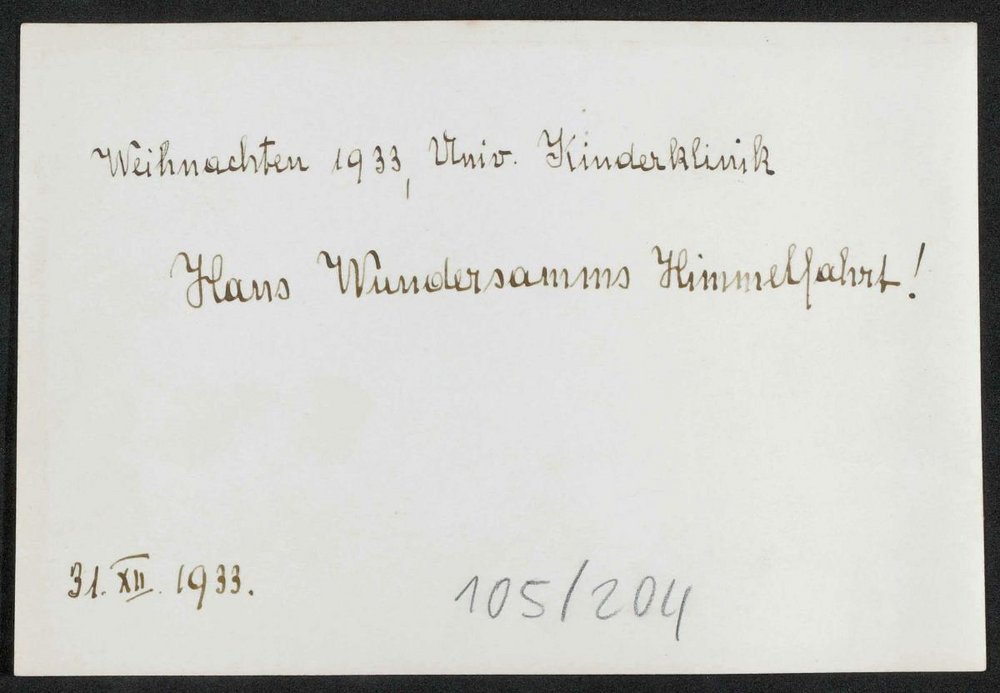 Weihnachten 1933, Univ. Kinderklinik
Hans Wundersamms Himmelfahrt!
31. XII. 1933.
105/204